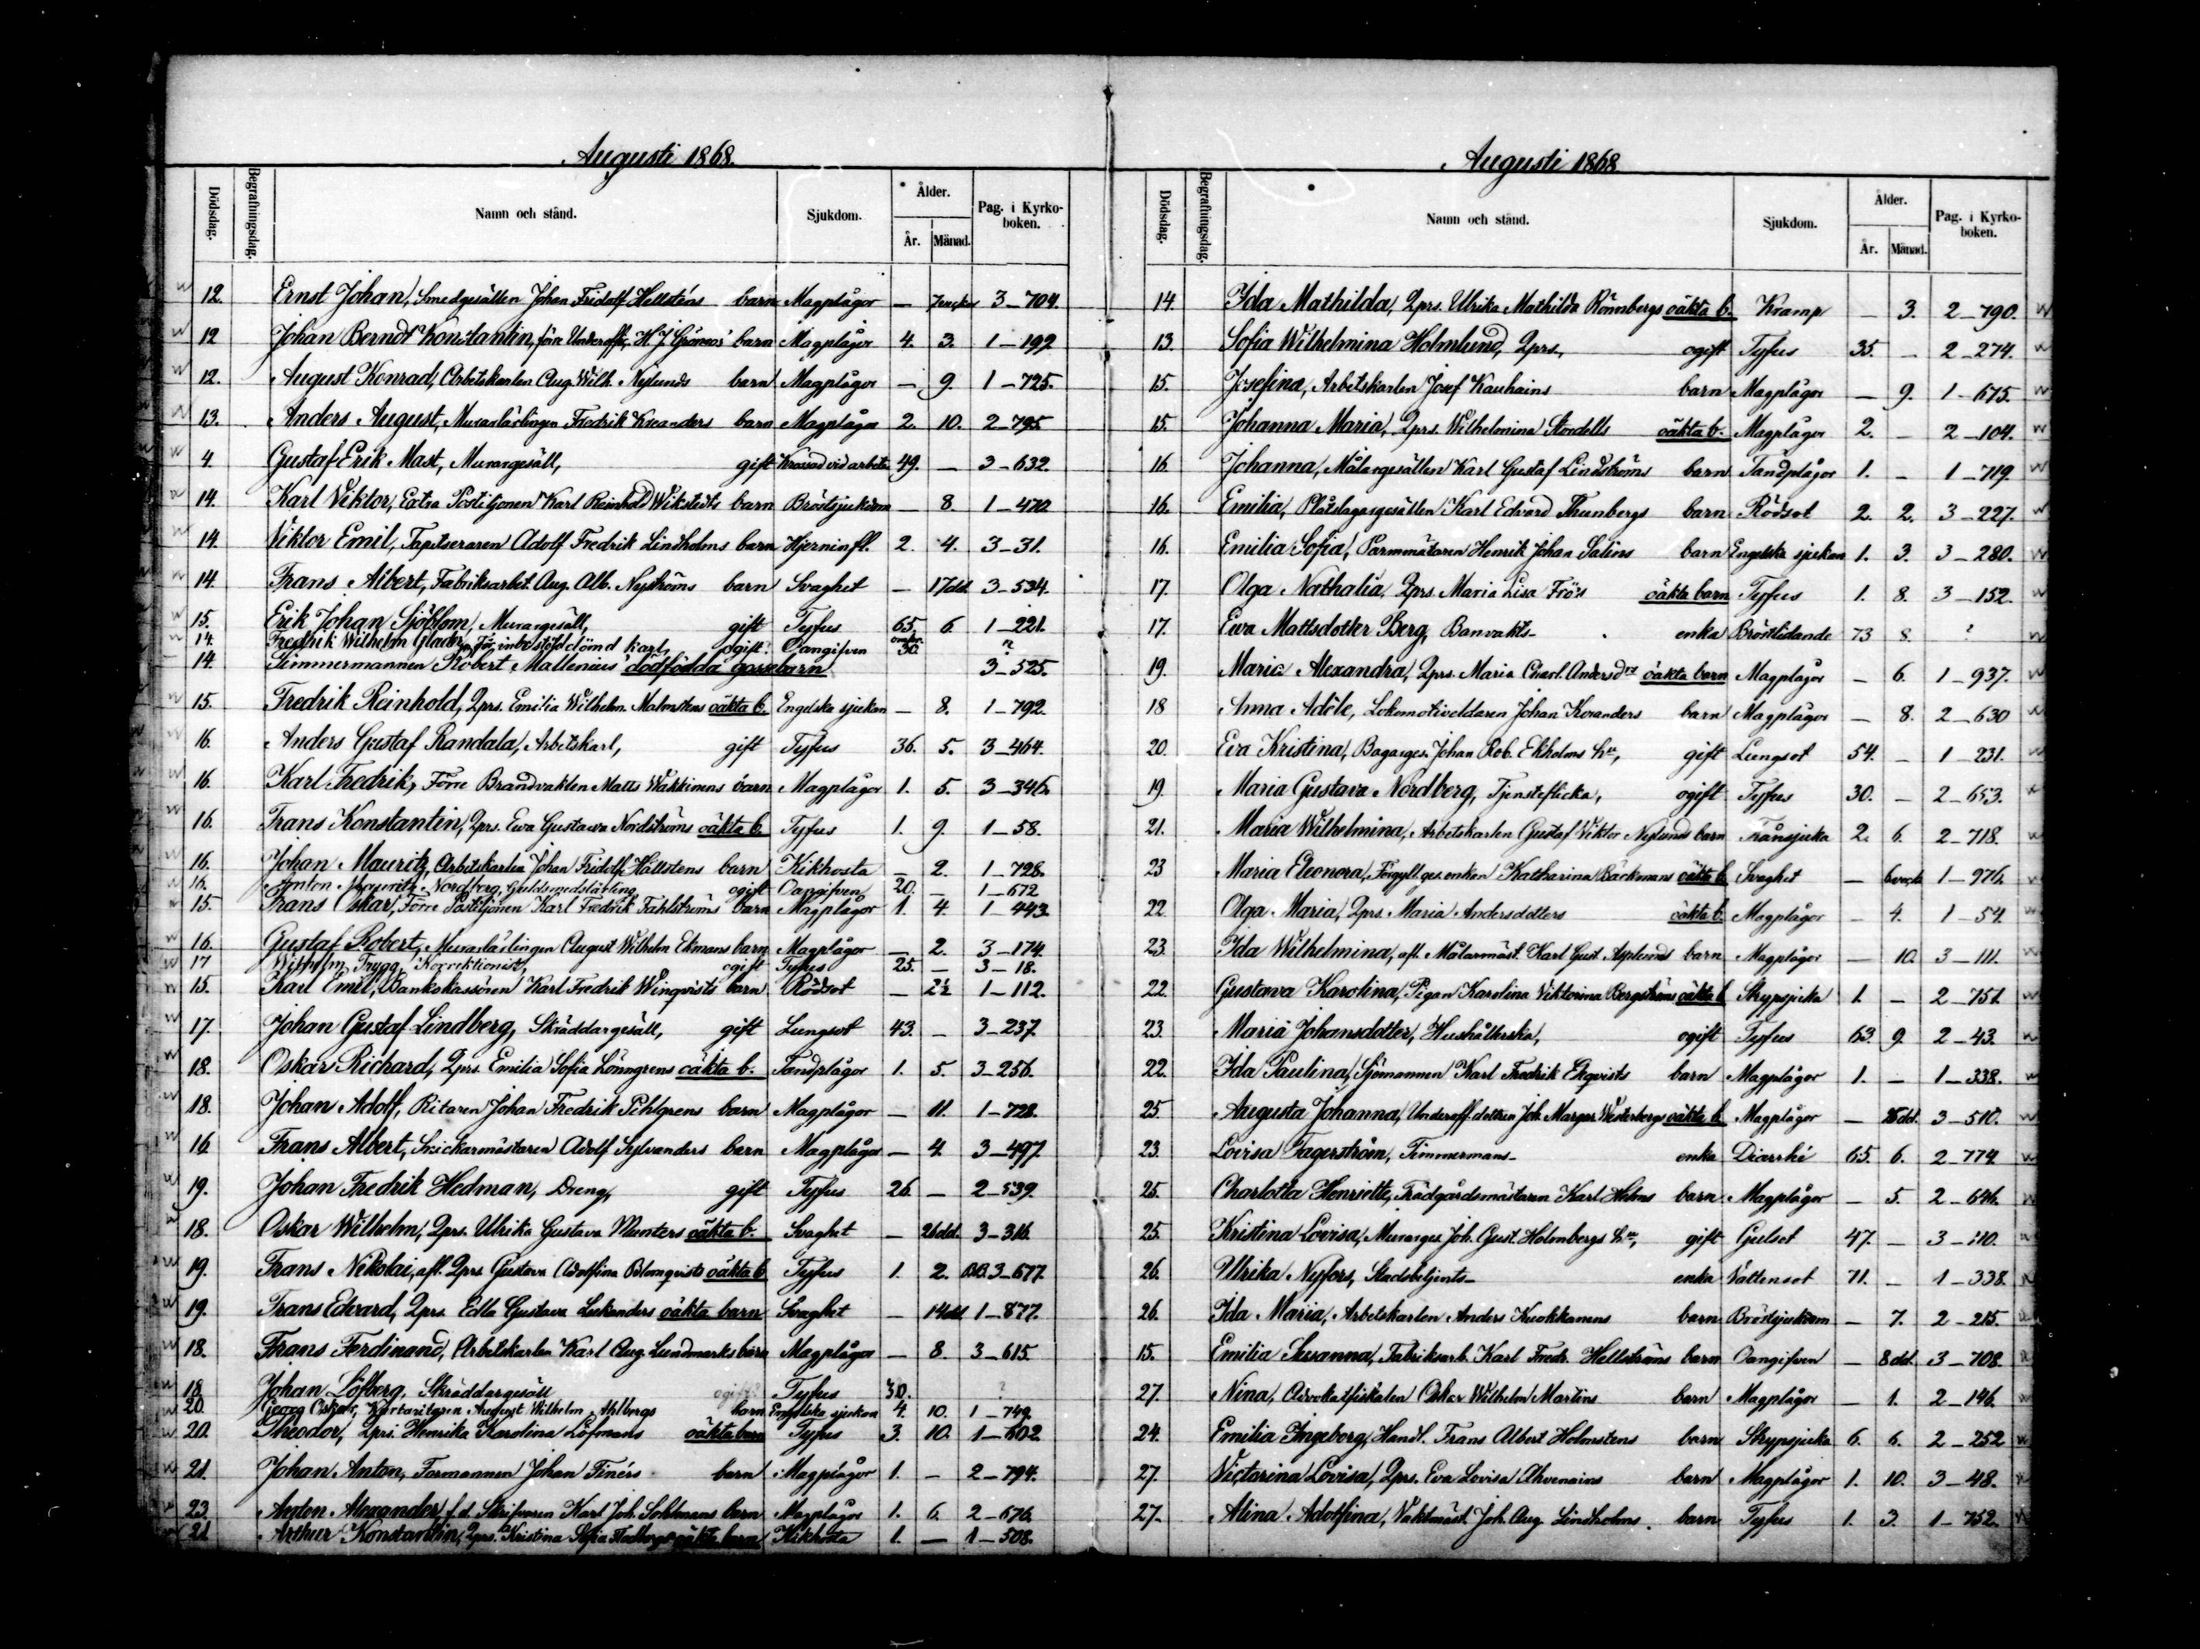 Augusti 1868.
Dödsdag. Begrafningsdag. Namn och stånd. Sjukdom. Ålder. År. Månad. Pag. i Kyrko-boken.
12. Ernst Johan, Smedgesällen Johan Fridolf Hellsténs barn Magplågor — 3—704.
12 Johan Berndt Konstantin, förre Underoff. H J barn Magplågor 4. 3. 1—192
12. August Konrad, Arbetskarlen Aug. Wilh. Nylunds barn Magplågor — 9. 1—725.
13. Anders August, Murarlärlingen Fredrik Kreanders barn Magplågor 2. 10. 2—795
4. Gustaf Erik Mast, Murargesäll, gift Krossad vid arbete 49. — 3—632.
14. Karl Viktor, Extra Postiljonen Karl Reinhold Wikstedts barn Bröstsjukdom — 8. 1—470
14. Viktor Emil, Tapitseraren Adolf Fredrik Lindholms barn Hjerninfl. 2. 4. 3—31.
14 Frans Albert, Fabriksarbet. Aug. Alb. Nyströms barn Svaghet — 17 dd. 3—534.
15. Erik Johan Sjöblom, Murargesäll, gift Tyfus 65. 6. 1—221.
14. Fredrik Wilhelm dömd karl, ogift. Oangifven 30 ?
14. Timmermannen Robert Mallenius' dödfödda gossebarn 3—525.
15. Fredrik Reinhold, Qprs. Emilia Wilhelm. Malmstens oäkta b. Engelska sjukan — 8. 1—792.
16. Anders Gustaf Randala, Arbetskarl, gift Tyfus 36. 5. 3—464.
16. Karl Fredrik, Förre Brandvakten Matts Wakkinens barn Magplågor 1. 5. 3—346.
16. Frans Konstantin, Qprs. Ewa Gustava Nordströms oäkta b. Tyfus 1. 9. 1—58.
16. Johan Mauritz, Arbetskarlen Johan Fridolf Hällstens barn Kikhosta — 2. 1—728.
16. Anton Mauritz Nordberg, Guldsmedslärling ogift Oangifven 20. — 1—672
15. Frans Oskar, Förre Postiljonen Karl Fredrik Fahlströms barn Magplågor 1. 4. 1—443.
16. Gustaf Robert, Murarlärlingen August Wilhelm Ekmans barn Magplågor — 2. 3—174.
17 Wilhelm Trygg, Korrektionist, ogift Tyfus 25. — 3—18.
15. Karl Emil, Bankokassören Karl Fredrik Winqvists barn Rödsot — 2½ 1—112.
17. Johan Gustaf Lindberg, Skräddargesäll, gift Lungsot 43. — 3—237.
18. Oskar Richard, Qprs. Emilia Sofia Lönngrens oäkta b. Tandplågor 1. 5. 3—256.
18. Johan Adolf, Ritaren Johan Fredrik Pihlgrens barn Magplågor — 11. 1—728.
16. Frans Albert, Snickarmästaren Adolf Sylvanders barn Magplågor — 4. 3—497
19. Johan Fredrik Hedman, Dreng, gift Tyfus 26. — 2—539.
18. Oskar Wilhelm, Qprs. Ulrika Gustava Munters oäkta b. Svaghet — 26 dd. 3—316.
19. Frans Nikolai, afl. Qprs Gustava Adolfina Blomqvists oäkta b Tyfus 1. 2. 3—677.
19. Frans Edvard, Qprs. Edla Gustava Leskenders oäkta barn Svaghet — 14 dd 1—877.
18. Frans Ferdinand, Arbetskarlen Karl Aug. Lundmarks barn Magplågor — 8. 3—615.
18. Johan Löfberg, Skräddargesäll ogift Tyfus 30.
20. Georg Oskar, August Wilhelm Ahlbergs barn Engelska sjukan 4. 10. 1—749.
20. Theodor, Qprs. Henrika Karolina Löfmans oäkta barn Tyfus 3. 10. 1—602
21. Johan Anton, Formannen Johan Finérs barn Magplågor 1. — 2—794.
23. Anton Alexander, f.d. Skrifvaren Karl Joh. barn Magplågor 1. 6. 2—676.
21. Arthur Konstantin, Qprs. Kristina Sofia oäkta barn Kikhosta 1. — 1—508.
Augusti 1868
Dödsdag. Begrafningsdag. Namn och stånd. Sjukdom. Ålder. År. Månad. Pag. i Kyrko-boken.
14. Ida Mathilda, Qprs. Ulrika Mathilda Rönnbergs oäkta b. Kramp — 3. 2—790.
13. Sofia Wilhelmina Holmlund, Qprs, ogift Tyfus 35. — 2—274.
15. Josefina, Arbetskarlen Josef Kauhains barn Magplågor — 9. 1—675.
15. Johanna Maria, Qprs. Wilhelmina Stordells oäkta b. Magplågor 2. — 2—104.
16. Johanna, Målaregesällen Karl Gustaf Lindströms barn Tandplågor 1. — 1—719.
16. Emilia, Plåtslagaregesällen Karl Edvard Thunbergs barn Rödsot 2. 2. 3—227.
16. Emilia Sofia, Parmmätaren Henrik Johan Salins barn Engelska sjukan 1. 3. 3—280.
17. Olga Nathalia, Qprs. Maria Lisa Frö's oäkta barn Tyfus 1. 8. 3—152.
17. Ewa Mattsdotter Berg, Banvakts- enka Bröstlidande 73 8. ?
19. Maria Alexandra, Qprs. Maria Charl. Andersdrs oäkta barn Magplågor — 6. 1—937.
18 Anna Adéle, Lokomotiveldaren Johan Koranders barn Magplågor — 8. 2—630
20. Eva Kristina, Bagareges. Johan Rob. Ekholms hu, gift Lungsot 54. — 1—231.
19. Maria Gustava Nordberg, Tjensteflicka, ogift Tyfus 30. — 2—653.
21. Maria Wilhelmina, Arbetskarlen Gustaf Viktor Nylunds barn Trånsjuka 2. 6. 2—718.
23 Maria Eleonora, Förgyll.ges.enkan Katharina Bäckmans oäkta b. Svaghet — 1—976.
22 Olga Maria, Qprs. Maria Andersdotters oäkta b. Magplågor — 4. 1—54.
23. Ida Wilhelmina, afl. Målarmäst. Karl Gust Asplunds barn Magplågor — 10. 3—111.
22. Gustawa Karolina, Pigan Karolina Viktorina Bergströms oäkta b Strypsjuka 1. — 2—751.
23. Maria Johansdotter, Hushållerska, ogift Tyfus 63. 9. 2—43.
22. Ida Paulina, Sjömannen Karl Fredrik Ekqvists barn Magplågor 1. — 1—338.
25. Augusta Johanna, Underoff.dottren Joh. Margar. Westerbergs oäkta b. Magplågor — 3—510.
23. Lovisa Fagerström, Timmermans- enka Diarrhé 65. 6. 2—774.
25. Charlotta Henriette, Trädgårdsmästaren Karl Holms barn Magplågor — 5. 2—646.
25. Kristina Lovisa, Murareges. Joh. Gust. Holmbergs hu, gift Gulsot 47. —
26. Ulrika Nyfors, Stadsbetjents- enka Vattensot 71. — 1—338.
26. Ida Maria, Arbetskarlen Anders Kuokkanens barn Bröstsjukdom — 7. 2—215
15. Emilia Susanna, Fabriksarb. Karl Fredr. Hellströms barn Oangifven — 8 dd. 3—708.
27. Nina, Advokatfiskalen Oskar Wilhelm Martins barn Magplågor — 1. 2—146.
24. Emilia Ingeborg, Handl. Frans Albert Holmstens barn Strypsjuka 6. 6. 2—252
27. Victorina Lovisa, Qprs. Eva Lovisa Ahvenains barn Magplågor 1. 10. 3—48.
27. Alina Adolfina, Vaktmäst. Joh. Aug. Lindholms barn Tyfus 1. 3. 1—752.